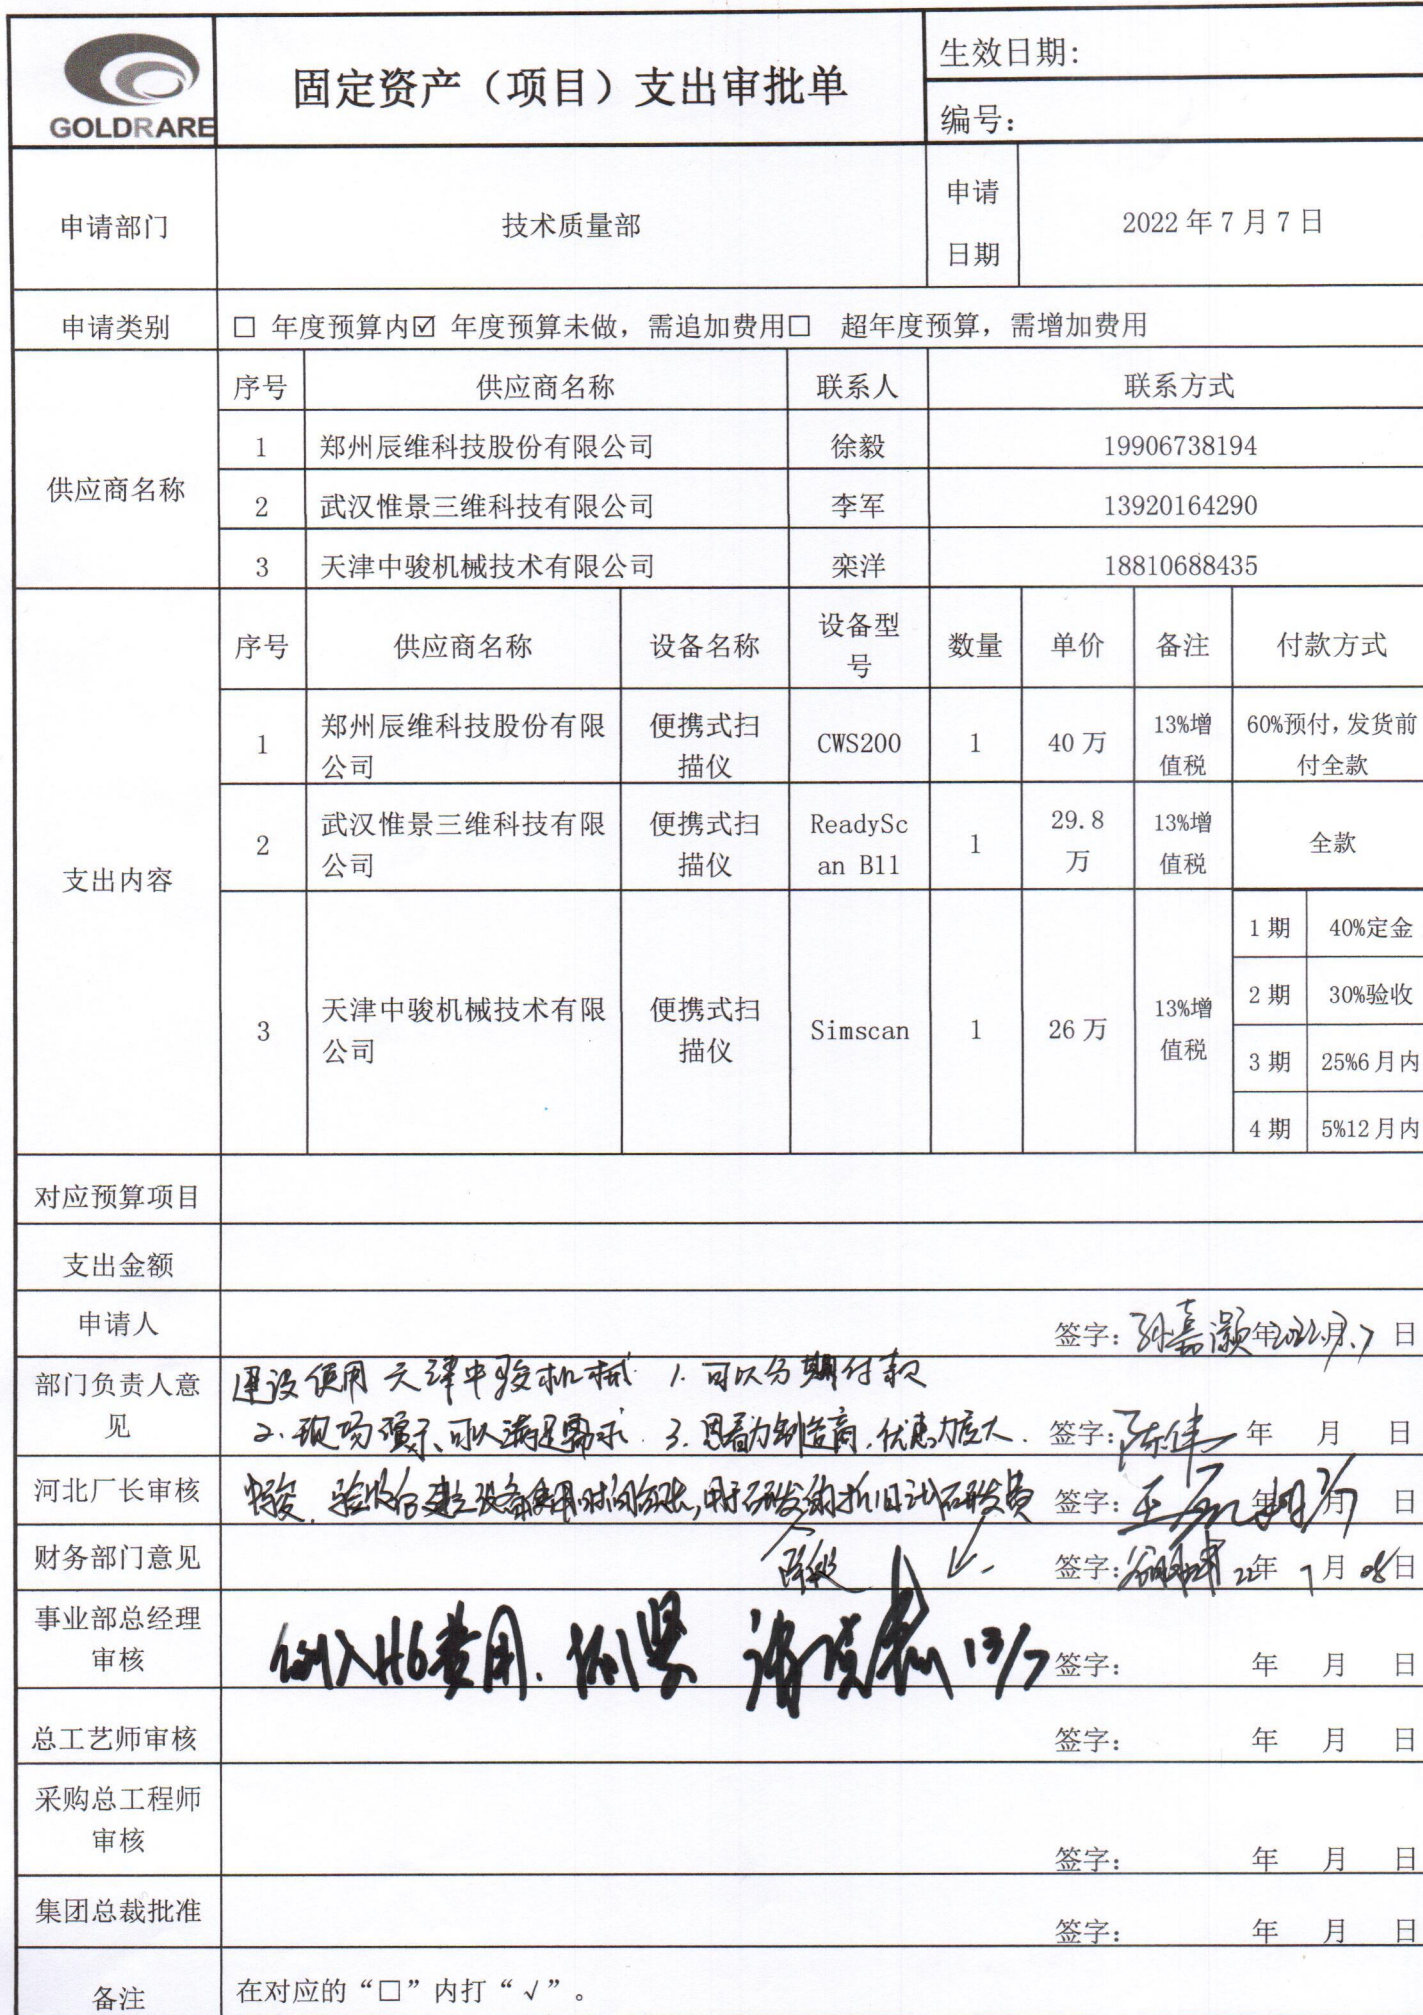 GOLDRARE
固定资产（项目）支出审批单
生效日期:
编号:
申请部门
技术质量部
申请
日期
2022 年 7 月 7 日
申请类别
□ 年度预算内☑ 年度预算未做, 需追加费用□ 超年度预算, 需增加费用
供应商名称
序号 供应商名称 联系人 联系方式
1 郑州辰维科技股份有限公司 徐毅 19906738194
2 武汉惟景三维科技有限公司 李军 13920164290
3 天津中骏机械技术有限公司 栾洋 18810688435
支出内容
序号 供应商名称 设备名称 设备型
号
数量 单价 备注 付款方式
1 郑州辰维科技股份有限
公司
便携式扫
描仪
CWS200 1 40 万 13%增
值税
60%预付, 发货前
付全款
2 武汉惟景三维科技有限
公司
便携式扫
描仪
ReadySc
an B11
1 29.8
万
13%增
值税
全款
3 天津中骏机械技术有限
公司
便携式扫
描仪
Simscan 1 26 万 13%增
值税
1 期 40%定金
2 期 30%验收
3 期 25%6 月内
4 期 5%12 月内
对应预算项目
支出金额
申请人 签字: 孙嘉灏 年 月 日
部门负责人意
见
建议使用天津中骏机械 1. 可以分期付款
2. 现场演示、可以满足需求. 3. 思看为制造商, 优惠力度大.
签字: 陈伟 年 月 日
河北厂长审核
中骏. 验收后建立设备使用时间台账, 用于研发的折旧计研发费
签字: 年 月 日
财务部门意见 签字: 22年 7月 08日
事业部总经理
审核
列入H6费用. 13/7
签字: 年 月 日
总工艺师审核 签字: 年 月 日
采购总工程师
审核
签字: 年 月 日
集团总裁批准 签字: 年 月 日
备注 在对应的“□”内打“√”。